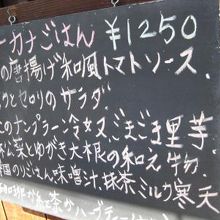 ーカナごはん ¥1250
の唐揚げ和風トマトソース.
とセロリのサラダ
このナンプラー冷奴 ごまごま里芋
松菜とゆがき大根の和え物
国のりごはん 味噌汁 抹茶ミルク寒天